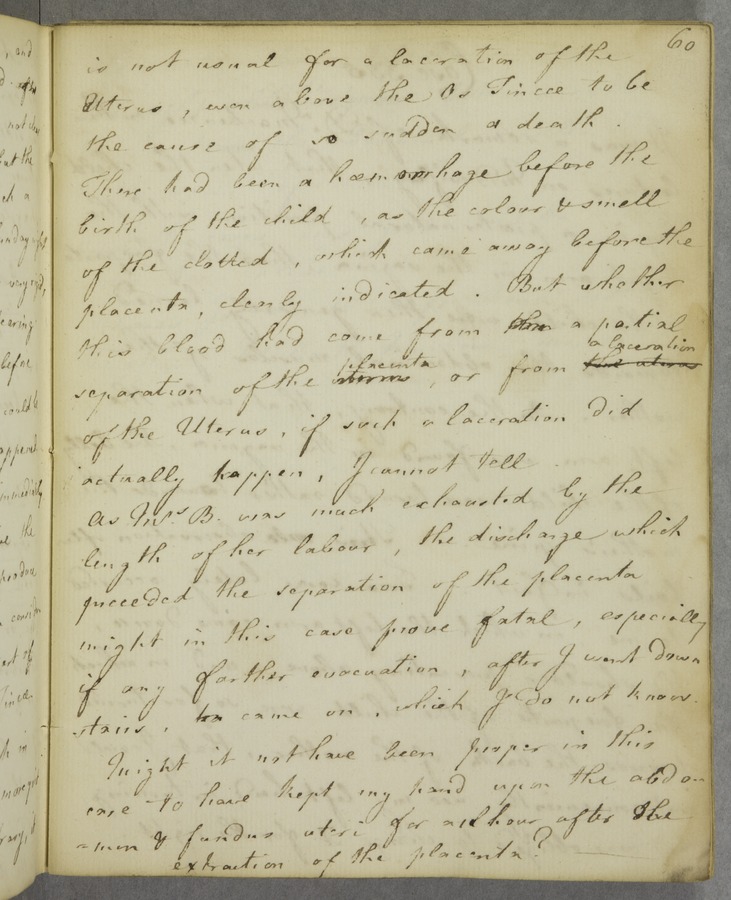 60
is not usual for a laceration of the
Uterus, even above the Os Tincae to be
the cause of so sudden a death.
There had been a haemorrhage before the
birth of the child, as the colour & smell
of the clotted, which came away before the
placenta, clearly indicated. But whether
this blood had come from a partial
a laceration
placenta
separation of the uterus, or from the uterus
of the Uterus, if such a laceration did
actually happen, I cannot tell.
As Mrs. B. was much exhausted by the
length of her labour, the discharge which
preceeded the separation of the placenta
might in this case prove fatal, especially
if any farther evacuation, after I went down
stairs, came on, which I do not know.
Might it not have been proper in this
case to have kept my hand upon the abdo-
=men & fundus uteri for an hour after the
extraction of the placenta?